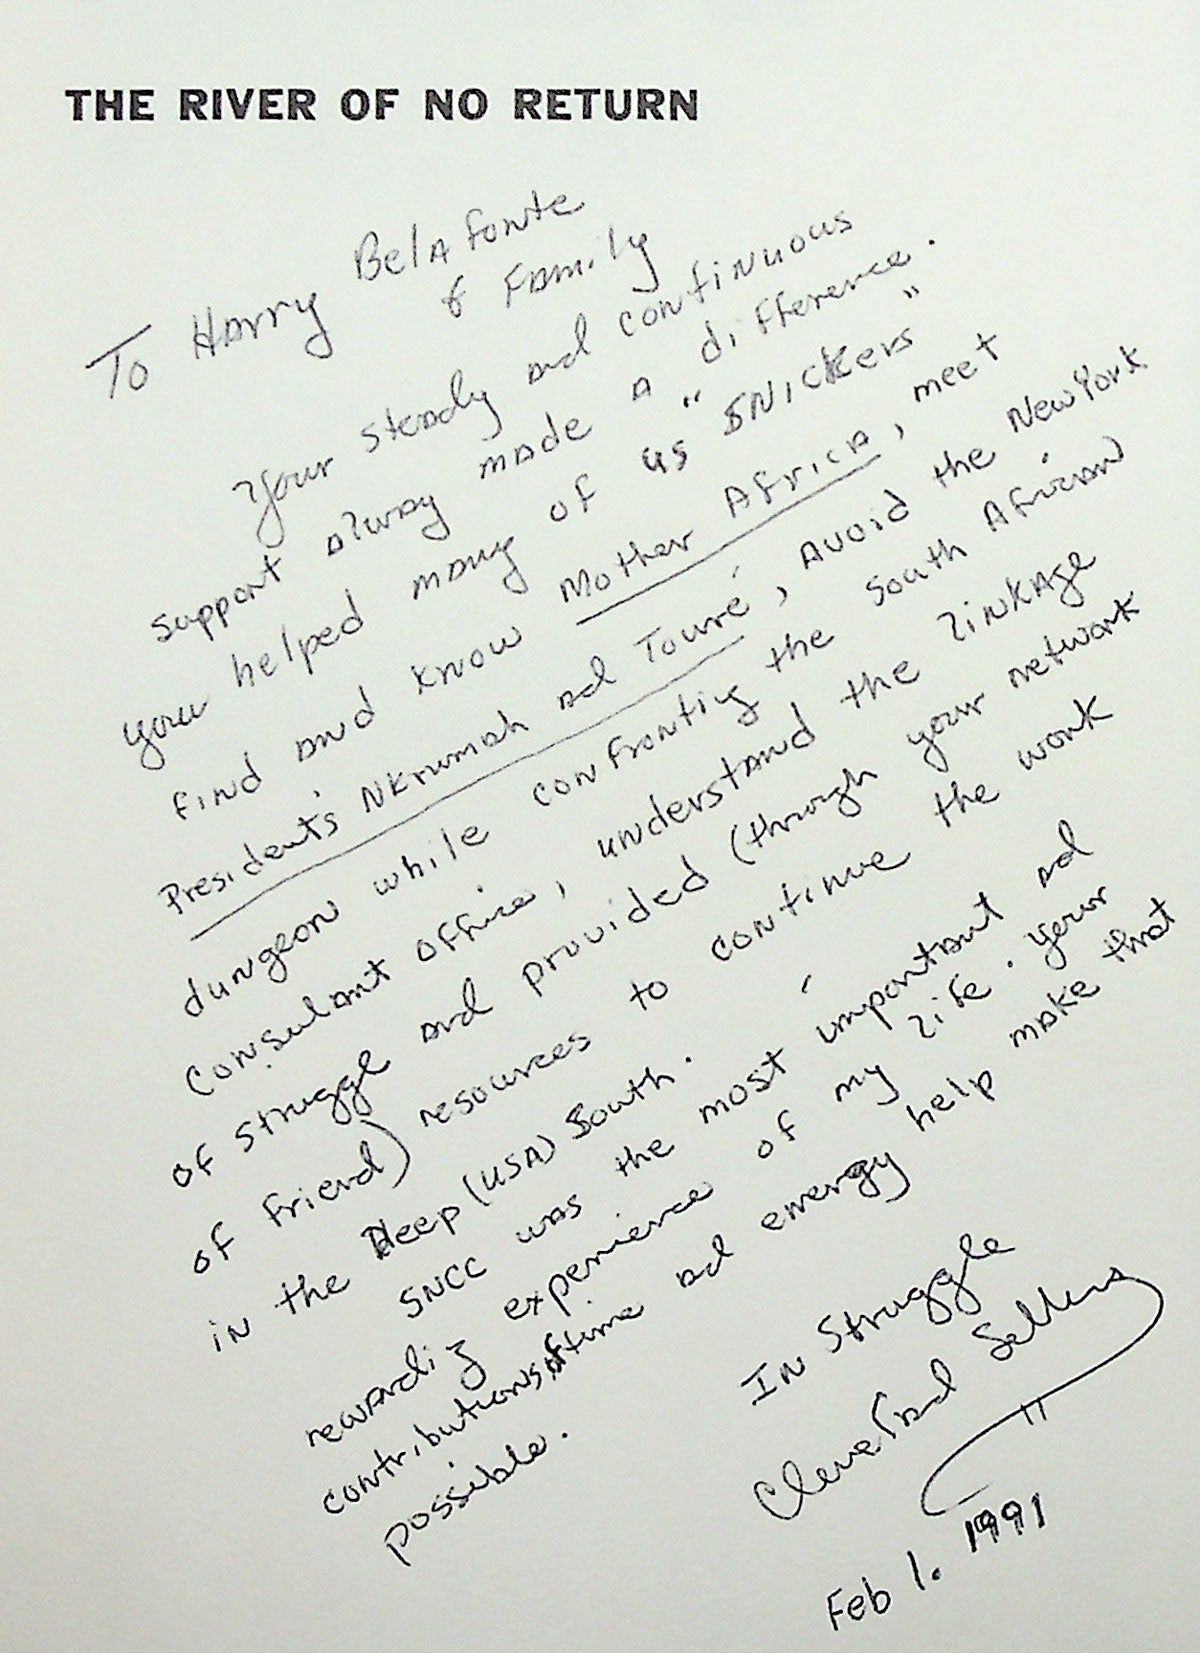 THE RIVER OF NO RETURN
To Harry Belafonte
& Family
Your steady and continuous
support alway made a difference.
you helped many of us "SNICKers"
find and know Mother Africa, meet
President's Nkrumah and Touré, avoid the New York
dungeon while confronting the South African
Consulant office, understand the linkage
of struggle and provided (through your network
of friend) resources to continue the work
in the Deep (USA) South.
SNCC was the most important and
rewarding experience of my life. your
contributions of time and energy help make that
possible.
In Struggle
Cleveland Sellers
Feb 1. 1991